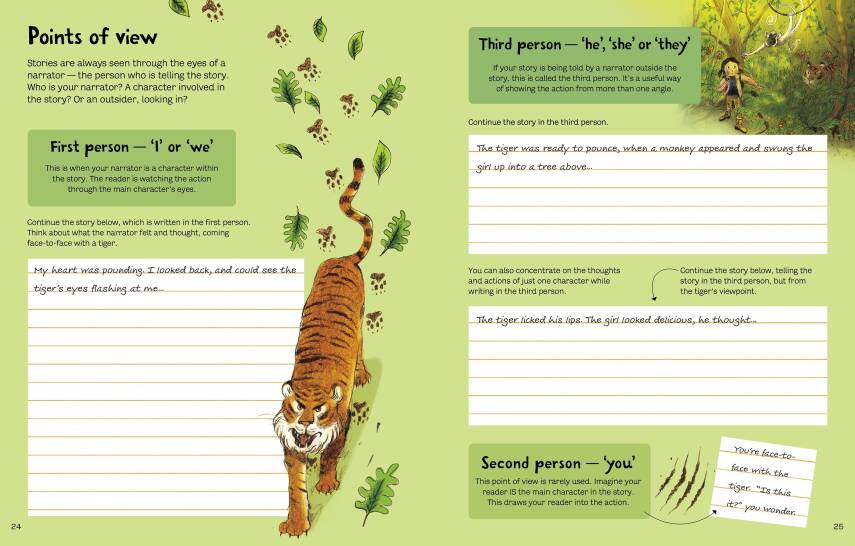 Points of view
Stories are always seen through the eyes of a
narrator — the person who is telling the story.
Who is your narrator? A character involved in
the story? Or an outsider, looking in?
First person — ‘I’ or ‘we’
This is when your narrator is a character within
the story. The reader is watching the action
through the main character’s eyes.
Continue the story below, which is written in the first person.
Think about what the narrator felt and thought, coming
face-to-face with a tiger.
My heart was pounding. I looked back, and could see the
tiger’s eyes flashing at me...
24
Third person — ‘he’, ‘she’ or ‘they’
If your story is being told by a narrator outside the
story, this is called the third person. It’s a useful way
of showing the action from more than one angle.
Continue the story in the third person.
The tiger was ready to pounce, when a monkey appeared and swung the
girl up into a tree above...
You can also concentrate on the thoughts
and actions of just one character while
writing in the third person.
Continue the story below, telling the
story in the third person, but from
the tiger’s viewpoint.
The tiger licked his lips. The girl looked delicious, he thought...
Second person — ‘you’
This point of view is rarely used. Imagine your
reader IS the main character in the story.
This draws your reader into the action.
You’re face-to-
face with the
tiger. “Is this
it?” you wonder.
25